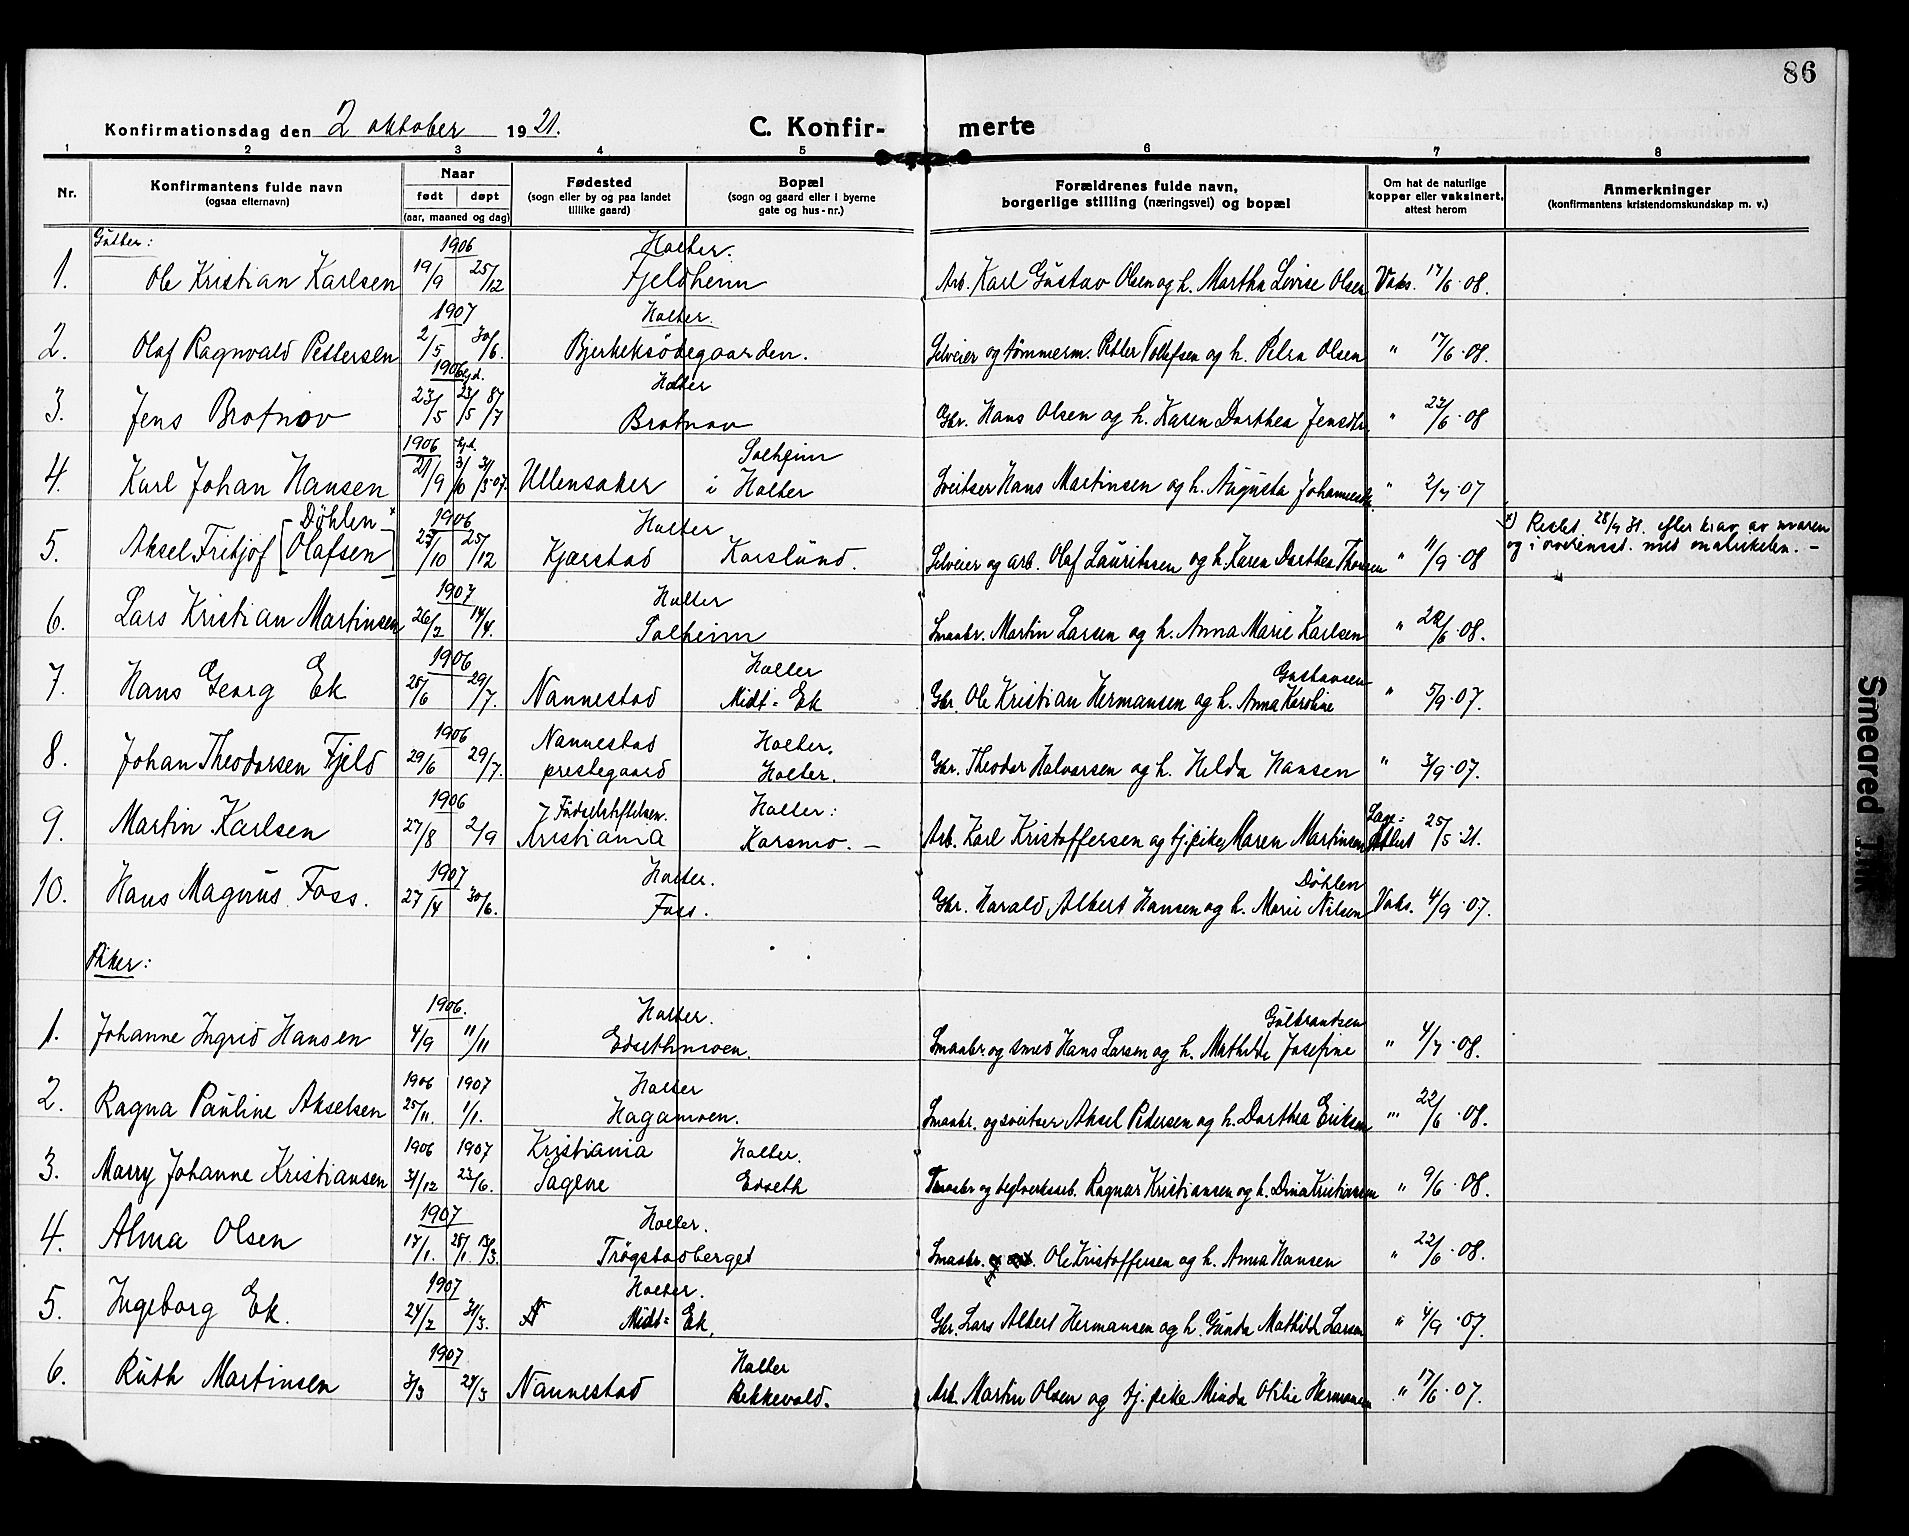 86
Konfirmationsdag den 2 oktober 1921.
C. Konfir- merte
1 2 3 4 5 6 7 8
Nr.
Konfirmantens fulde navn
(ogsaa efternavn)
Naar
født døpt
(aar, maaned og dag)
Fødested
(sogn eller by og paa landet
tillike gaard)
Bopæl
(sogn og gaard eller i byerne
gate og hus-nr.)
Forældrenes fulde navn,
borgerlige stilling (næringsvei) og bopæl
Om hat de naturlige
kopper eller vaksinert,
attest herom
Anmerkninger
(konfirmantens kristendomskundskap m. v.)
Gutter:
1906 Holter.
1. Ole Kristian Karlsen 19/9 25/12 Fjeldheim Arb. Karl Gustav Olsen og h. Martha Lovise Olsen Vaks. 17/6·08.
1907 Holter.
2. Olaf Ragnvald Pettersen 2/5 30/6. Bjerkeksødegaarden. Selveier og tømmerm. Petter Tollefsen og h. Petra Olsen " 17/6·08.
1906 hjd. Holter
3. Jens Brotnov 23/5 23/5 8/7 Brotnov Gbr. Hans Olsen og h. Karen Dorthea Jensdtr. " 22/6·08
1906 hjd. Solheim
4. Karl Johan Hansen 21/9 3/10 31/3·07. Ullensaker i Holter Sveitser Hans Martinsen og h. Augusta Johannesdtr. " 2/7·07
Døhlen x 1906 Holter x) Rectet. 28/9 31. efter krav av moren
5. Aksel Fritjof [Olafsen] 23/10 25/12 Kjærstad Karslund. Selveier og arb. Olaf Lauritssen og h. Karen Dorthea Thorsen " 11/9·08 og i overensst. med matrikelen. –
1907 Holter
6. Lars Kristian Martinsen 26/2 14/4. Solheim Smaabr. Martin Larsen og h. Anna Marie Karlsen " 22/6·08.
1906 Holter Gustavsen
7. Hans Georg Ek 25/6 29/7. Nannestad Midt-Ek Gbr. Ole Kristian Hermansen og h. Anna Karoline " 5/9·07.
1906 Nannestad Holter.
8. Johan Theodorsen Fjeld 29/6 29/7. prestegaard Holter. Gbr. Theodor Halvorsen og h. Hilda Hansen " 3/9·07.
1906 Fødselstiftelsen. Holter:
9. Martin Karlsen 27/8 2/9 Kristiania Karsmo. – Arb. Karl Kristoffersen og tj.pike Maren Martinsen 25/5·21.
1907 Holter. Døhlen
10. Hans Magnus Foss. 27/4 30/6. Foss. Gbr. Harald Albert Hansen og h. Marie Nilsen Vaks. 4/9·07.
Piker:
1906. Holter. Gulbrandsen
1. Johanne Ingrid Hansen 4/9 11/11 Edsethmoen. Smaabr. og smed Hans Larsen og h. Mathilde Josefine " 4/7·08.
1906 1907 Holter
2. Ragna Pauline Akselsen 25/11. 1/1. Hagamoen. Smaabr. og sveitser Aksel Pedersen og h. Dorthea Eriksen " 22/6·08.
1906 1907 Kristiania Holter.
3. Marry Johanne Kristiansen 31/12 23/6. Sagene Edseth Smaabr og teglverksarb. Ragnar Kristiansen og h. Dina Kristiansen " 9/6·08.
1907 Holter.
4. Alma Olsen 17/1. 25/1. 13/3. Trøgstadberget Smaabr. Ole Kristoffersen og h. Anna Hansen " 22/6·08.
1907 Holter.
5. Ingeborg Ek. 24/2 31/3. Midt-Ek. Gbr. Lars Albert Hermansen og h. Gunda Mathilde Larsen " 4/9·07.
1907 Holter
6. Ruth Martinsen 3/3 24/3 Nannestad Bekkevold. Arb. Martin Olsen og tj.pike Minda Otilie Hermansen " 17/6·07.
Smeared Ink